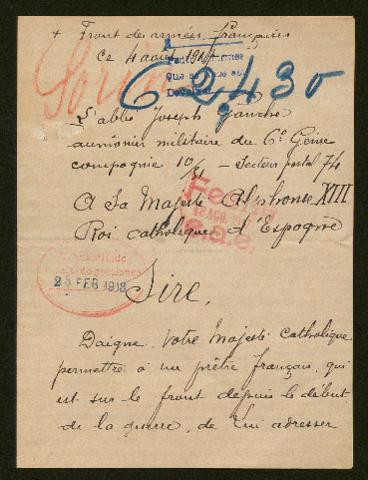 + Front des armées françaises
ce 4 août 1917
62,430
L'abbé Joseph Gauche
aumônier militaire du 6e Génie
compagnie 10/51 – secteur postal 74
A Sa Majesté Alphonse XIII
Roi catholique d'Espagne
25 FEB 1918
Sire,
Daigne Votre Majesté catholique
permettre à un prêtre français, qui
est sur le front depuis le début
de la guerre, de Lui adresser